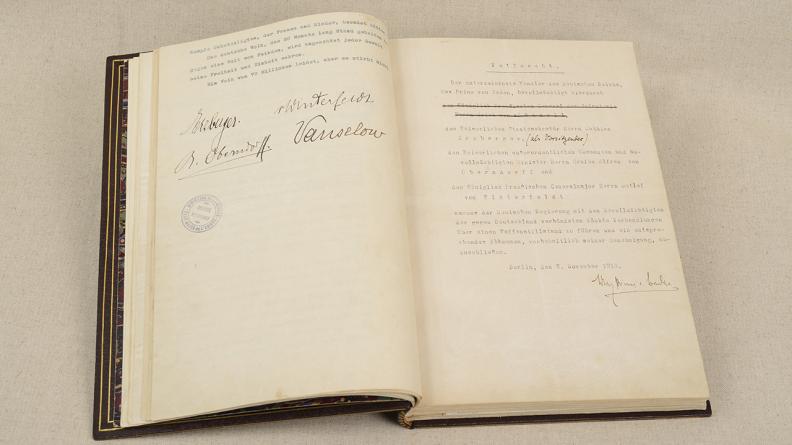 Das deutsche Volk, das 50 Monate lang Stand gehalten
gegen eine Welt von Feinden, wird ungeachtet jeder Gewalt
seine Freiheit und Einheit wahren.
Ein Volk von 70 Millionen leidet, aber es stirbt nicht.
Erzberger.
v Winterfeldt
A. Oberndorff.
Vanselow
Vollmacht.
Der unterzeichnete Kanzler des Deutschen Reichs,
Max Prinz von Baden, bevollmächtigt hierdurch
den Kaiserlichen Staatssekretär Herrn Mathias
Erzberger, (als Vorsitzender)
den Kaiserlichen ausserordentlichen Gesandten und be-
vollmächtigten Minister Herrn Grafen Alfred von
Oberndorff und
den Königlich Preußischen Generalmajor Herrn Detlef
von Winterfeldt
namens der Deutschen Regierung mit den Bevollmächtigten
der gegen Deutschland verbündeten Mächte Verhandlungen
über einen Waffenstillstand zu führen und ein entspre-
chendes Abkommen, vorbehaltlich seiner Genehmigung, ab-
zuschließen.
Berlin, den 6. November 1918.
Max Prinz v Baden